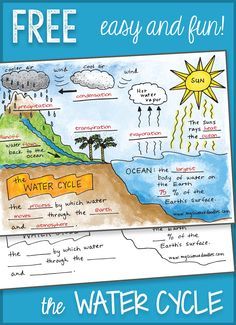 FREE
easy and fun!
water air
wind
cool air
wind
SUN
Hot
water
vapor
condensation
precipitation
transpiration
evaporation
The Sun's
rays heat
the ocean.
water flows
back to the
ocean.
the
WATER CYCLE
OCEAN: the largest
body of water on
the Earth
75 % of the
Earth's Surface.
the process by which water
moves through the Earth
and
www.mysciencedoodles.com
the by which water
through the
and
% of the
Earth's Surface.
the WATER CYCLE